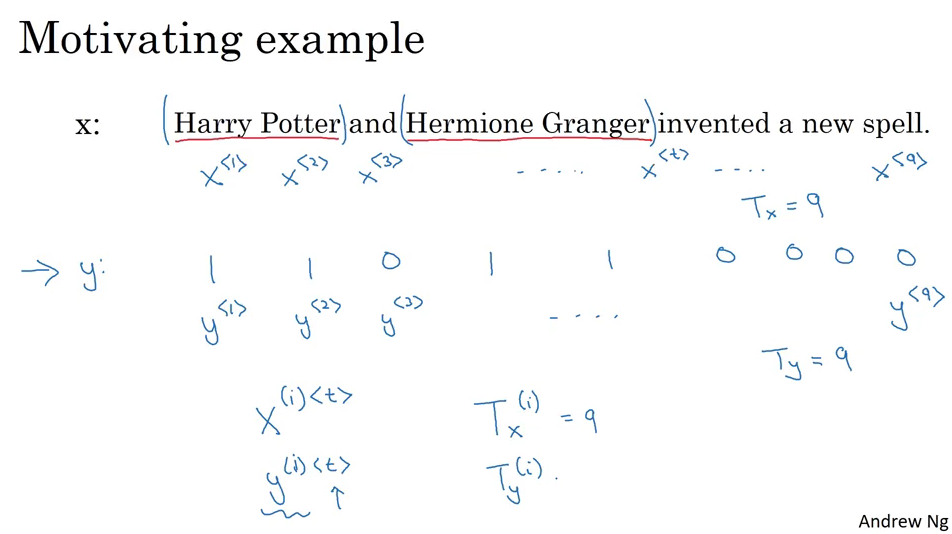 Motivating example
x: (Harry Potter) and (Hermione Granger) invented a new spell.
x<1> x<2> x<3> ..... x<t> .... x<9>
Tx = 9
→ y: 1 1 0 1 1 0 0 0 0
y<1> y<2> y<3> ..... y<9>
Ty = 9
X(i)<t> Tx(i) = 9
y(i)<t> Ty(i)
↑
Andrew Ng